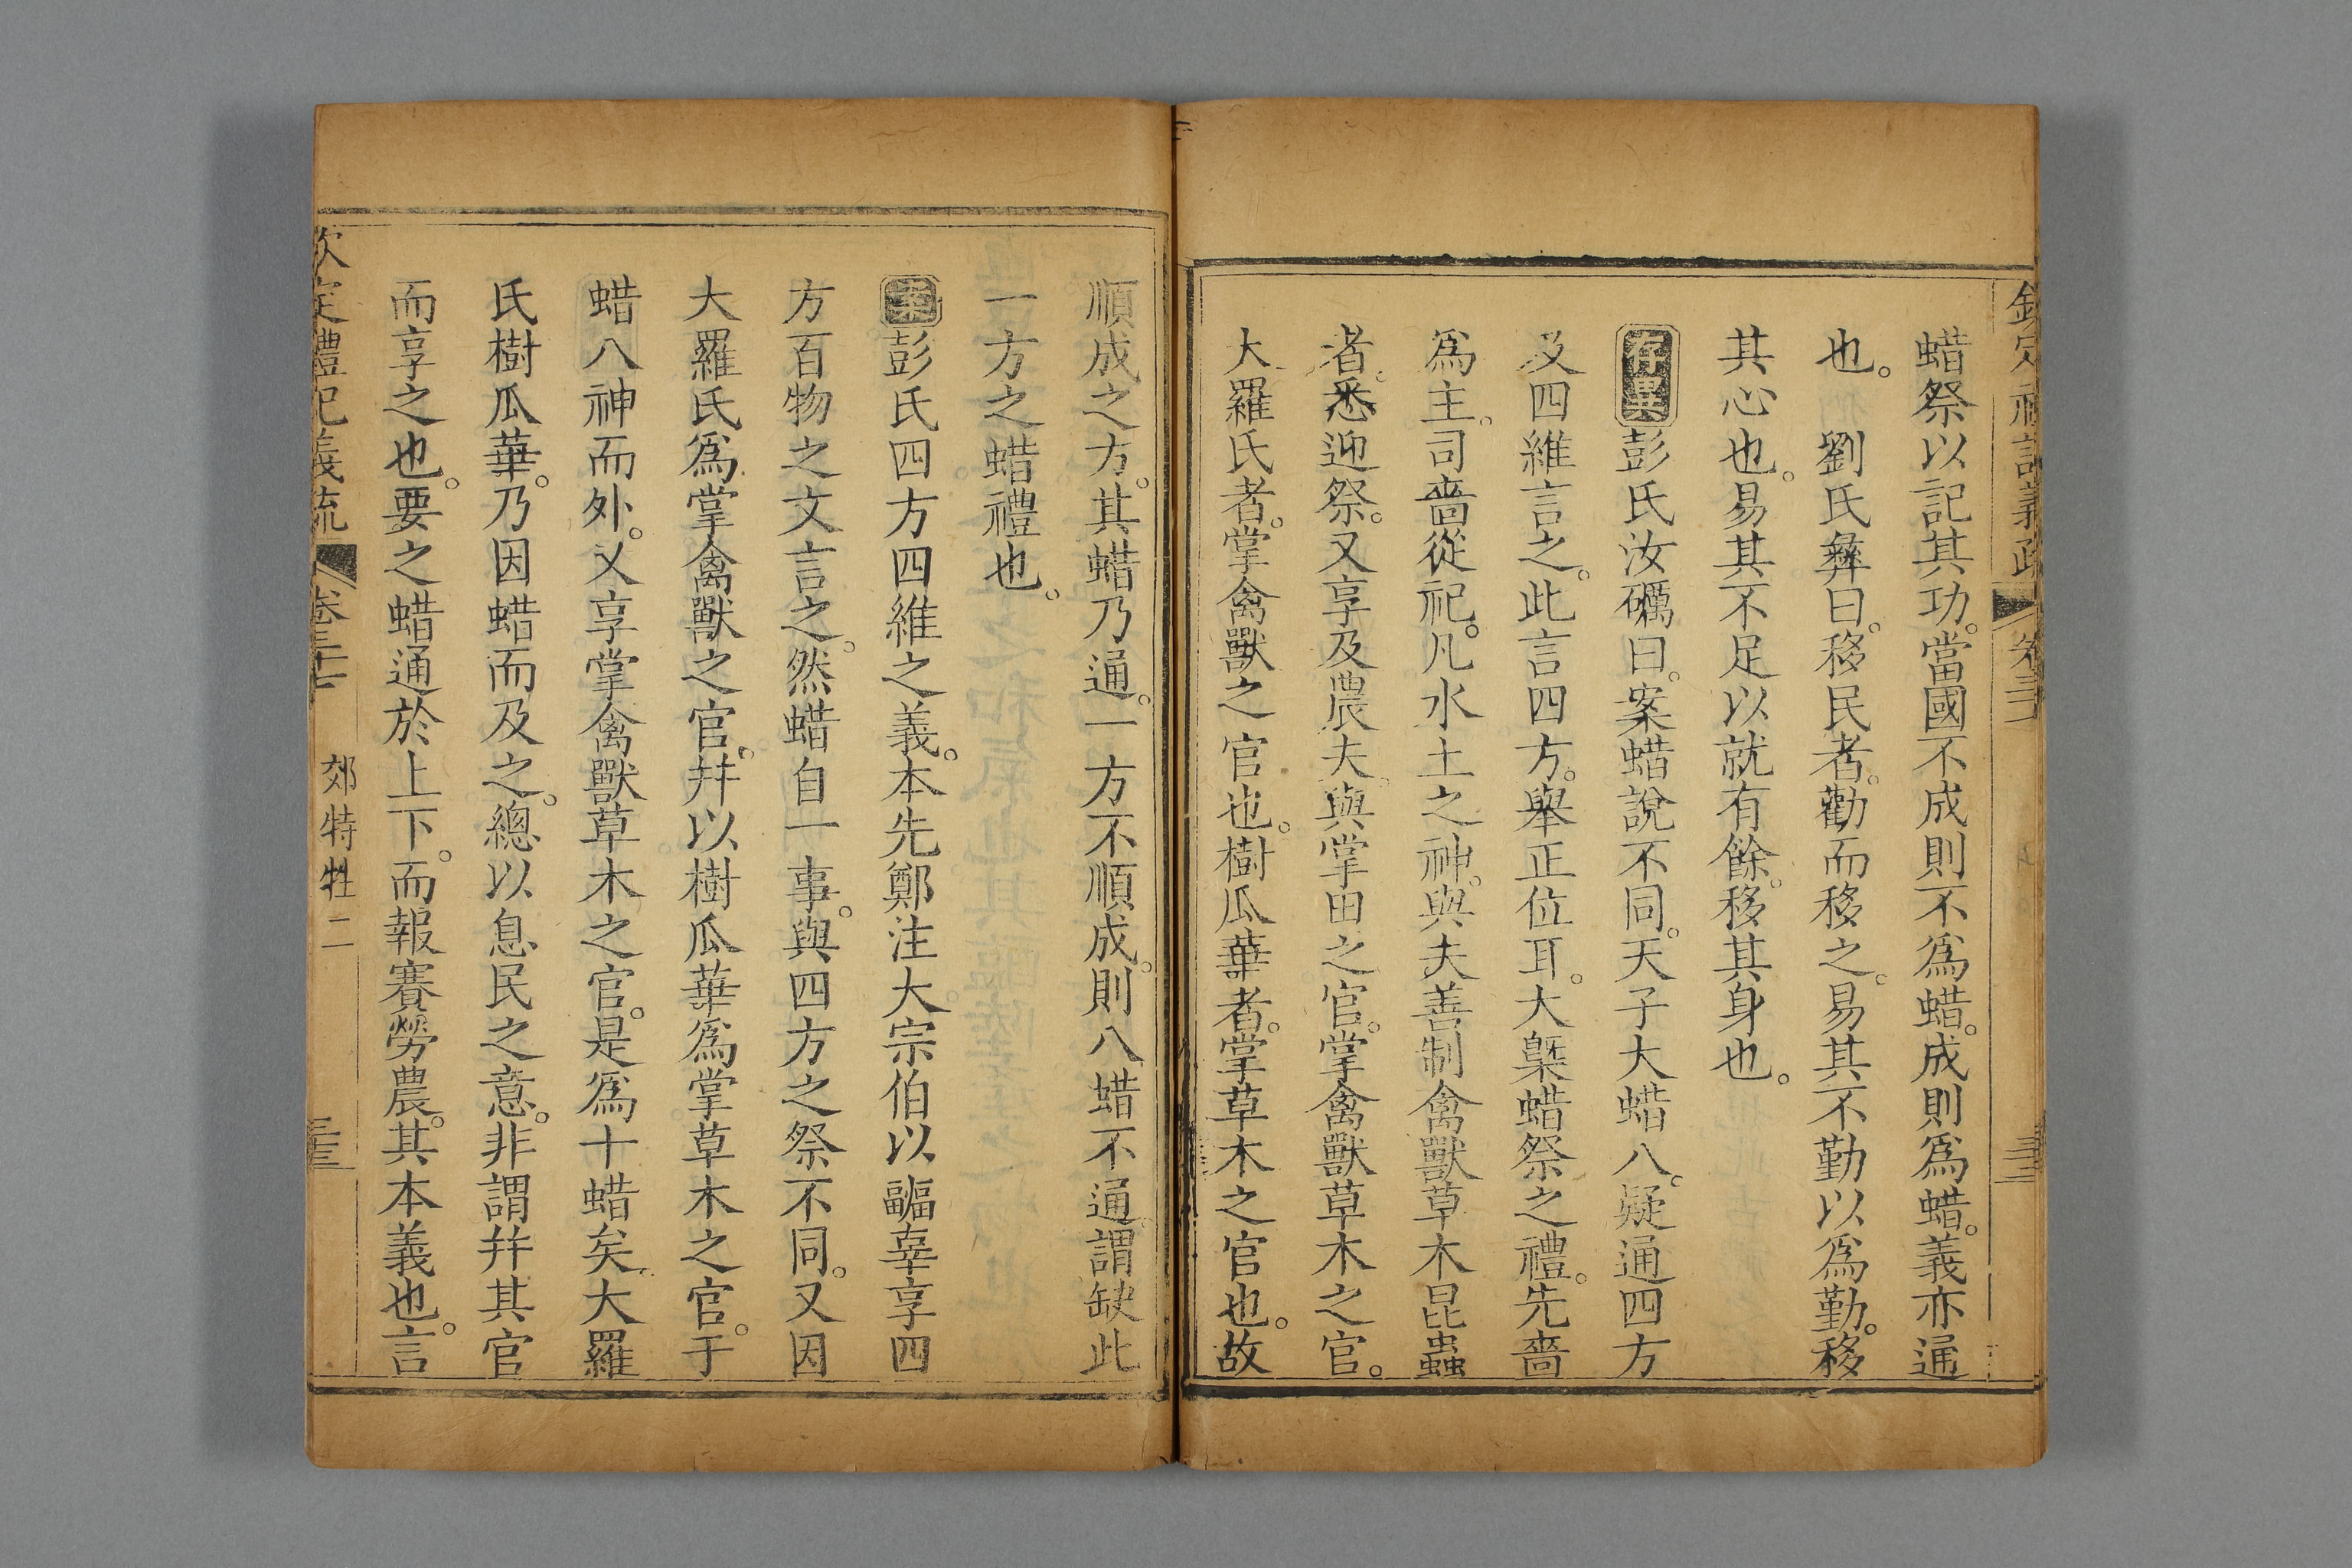 蜡祭以記其功。當國不成則不爲蜡。成則爲蜡。義亦通
也。劉氏彝曰。移民者。勸而移之。易其不勤以爲勤。移
其心也。易其不足以就有餘。移其身也。
存異彭氏汝礪曰。案蜡說不同。天子大蜡八。疑通四方
及四維言之。此言四方。舉正位耳。大槩蜡祭之禮。先嗇
爲主。司嗇從祀。凡水土之神。與夫善制禽獸草木昆蟲
者。悉迎祭。又享及農夫。與掌田之官。掌禽獸草木之官。
大羅氏者。掌禽獸之官也。樹瓜華者。掌草木之官也。故
順成之方。其蜡乃通。一方不順成。則八蜡不通。謂缺此
一方之蜡禮也。
案彭氏四方四維之義。本先鄭注大宗伯以疈辜享四
方百物之文言之。然蜡自一事。與四方之祭不同。又因
大羅氏爲掌禽獸之官。幷以樹瓜華爲掌草木之官。于
蜡八神而外。又享掌禽獸草木之官。是爲十蜡矣。大羅
氏樹瓜華。乃因蜡而及之。總以息民之意。非謂幷其官
而享之也。要之蜡通於上下。而報賽勞農。其本義也。言
欽定禮記義疏 卷三十七 郊特牲二 三三